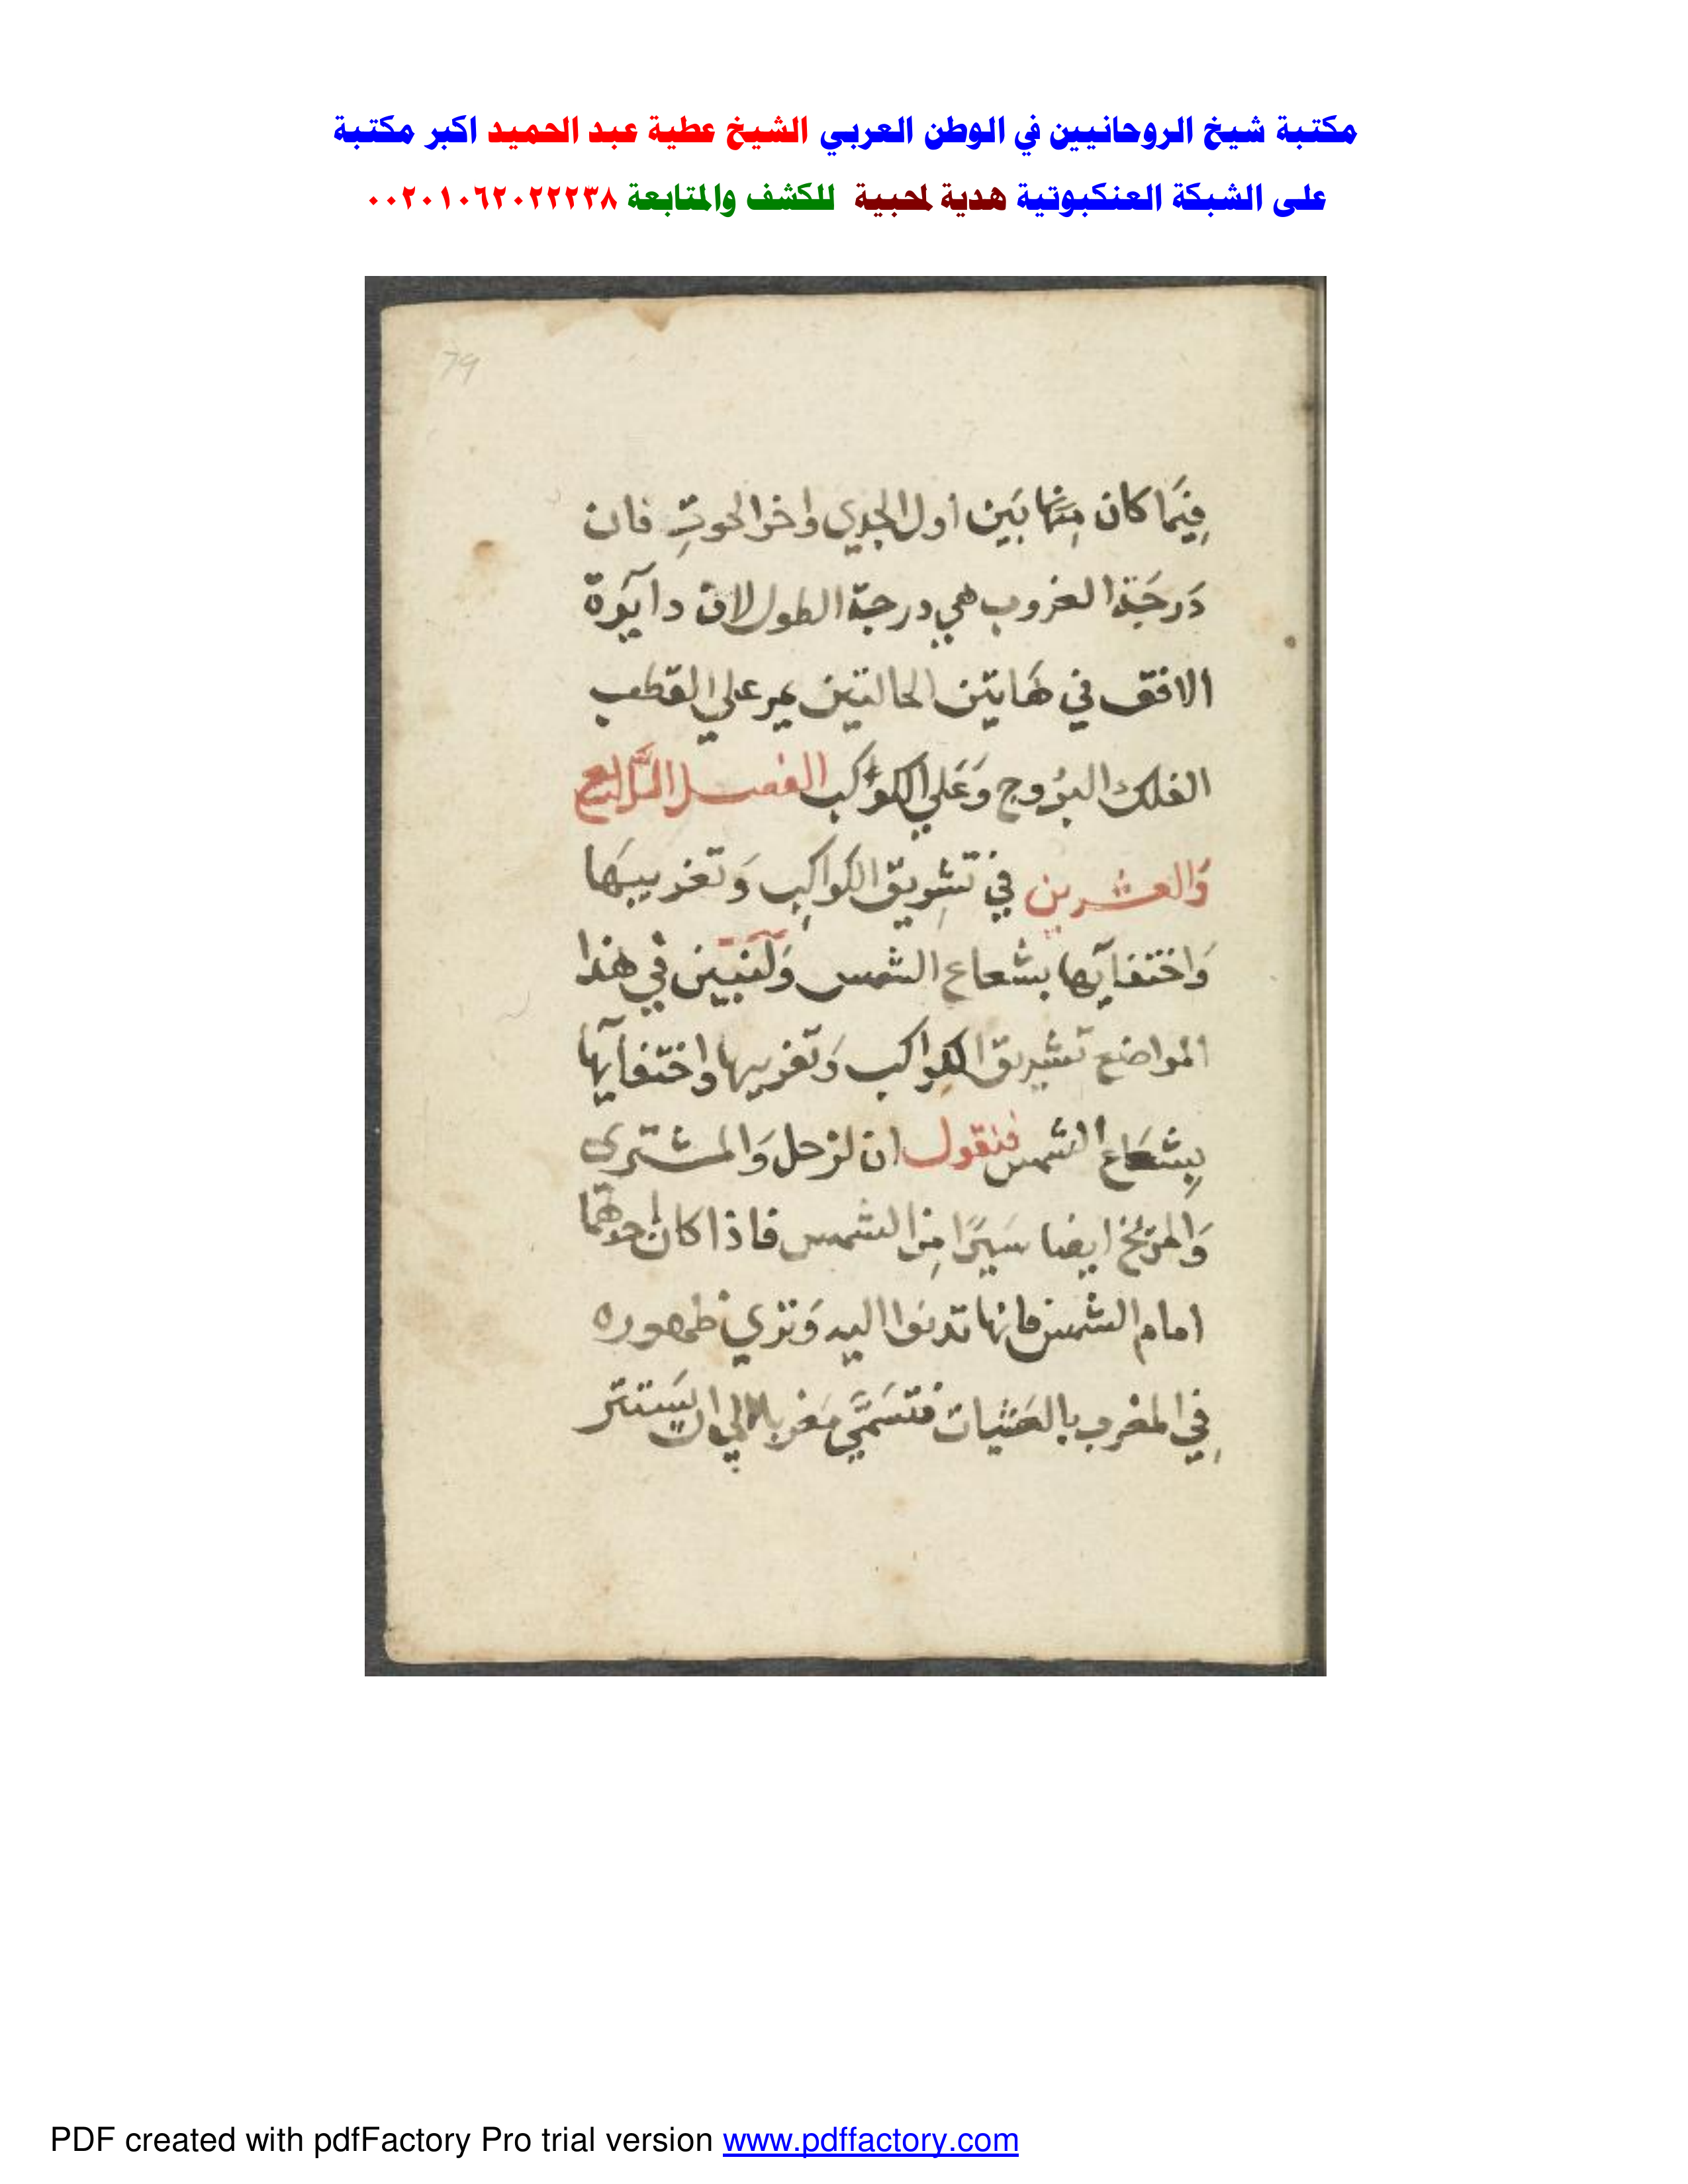 مكتبة شيخ الروحانيين في الوطن العربي الشيخ عطية عبد الحميد اكبر مكتبة
على الشبكة العنكبوتية هدية لمحبية للكشف والمتابعة ٠٠٢٠١٠٦٢٠٢٢٢٣٨
79
فِيَما كان مِنها بَين اول الجدي واخر الحوتِ فان
دَرجَة الغروب هي درجة الطول لان دايرة
الافق في هَاتين الحالتين يمر علي القطب
الفلك البرُوج وَعَلي الكواكب الفصل الرابع
وَالعشرين في تشريق الكواكب وَتغريبهَا
وَاختفايها بشعاع الشمس وَلنبين في هذا
المواضع تشريق الكواكب وَتغريبها واختفايها
بِشعَاع الشمس فنقول ان لزحل وَالمشترى
وَالمريخ ايضا سَيرًا مِن الشمس فاذا كان احدهمَا
امام الشمس فانها تدنوا اليه وَتري ظهوره
فِي المغرب بالعَشيات فتسَمَّي مَغربا الي ان يَستتر
PDF created with pdfFactory Pro trial version www.pdffactory.com